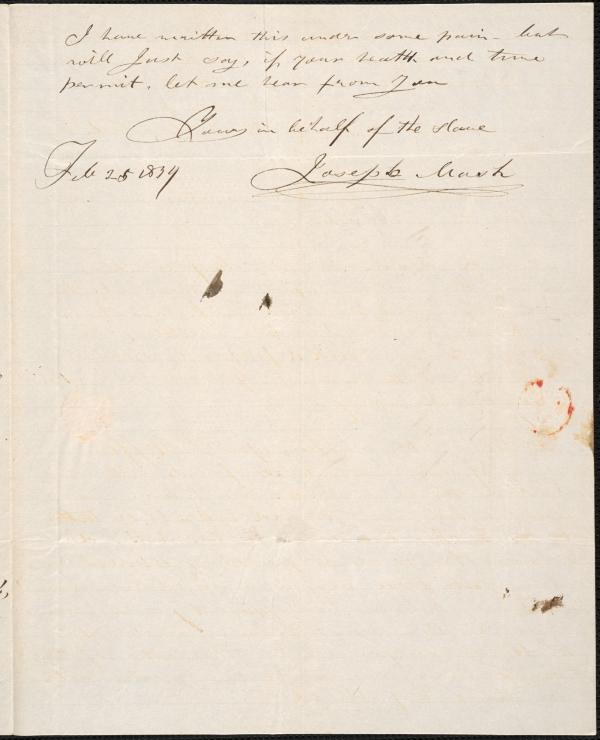 I have written this under some pain - but
will Just say, if your health and time
permit, let me hear from you
Yours in behalf of the slave
Feb 25 1839 Joseph Marsh